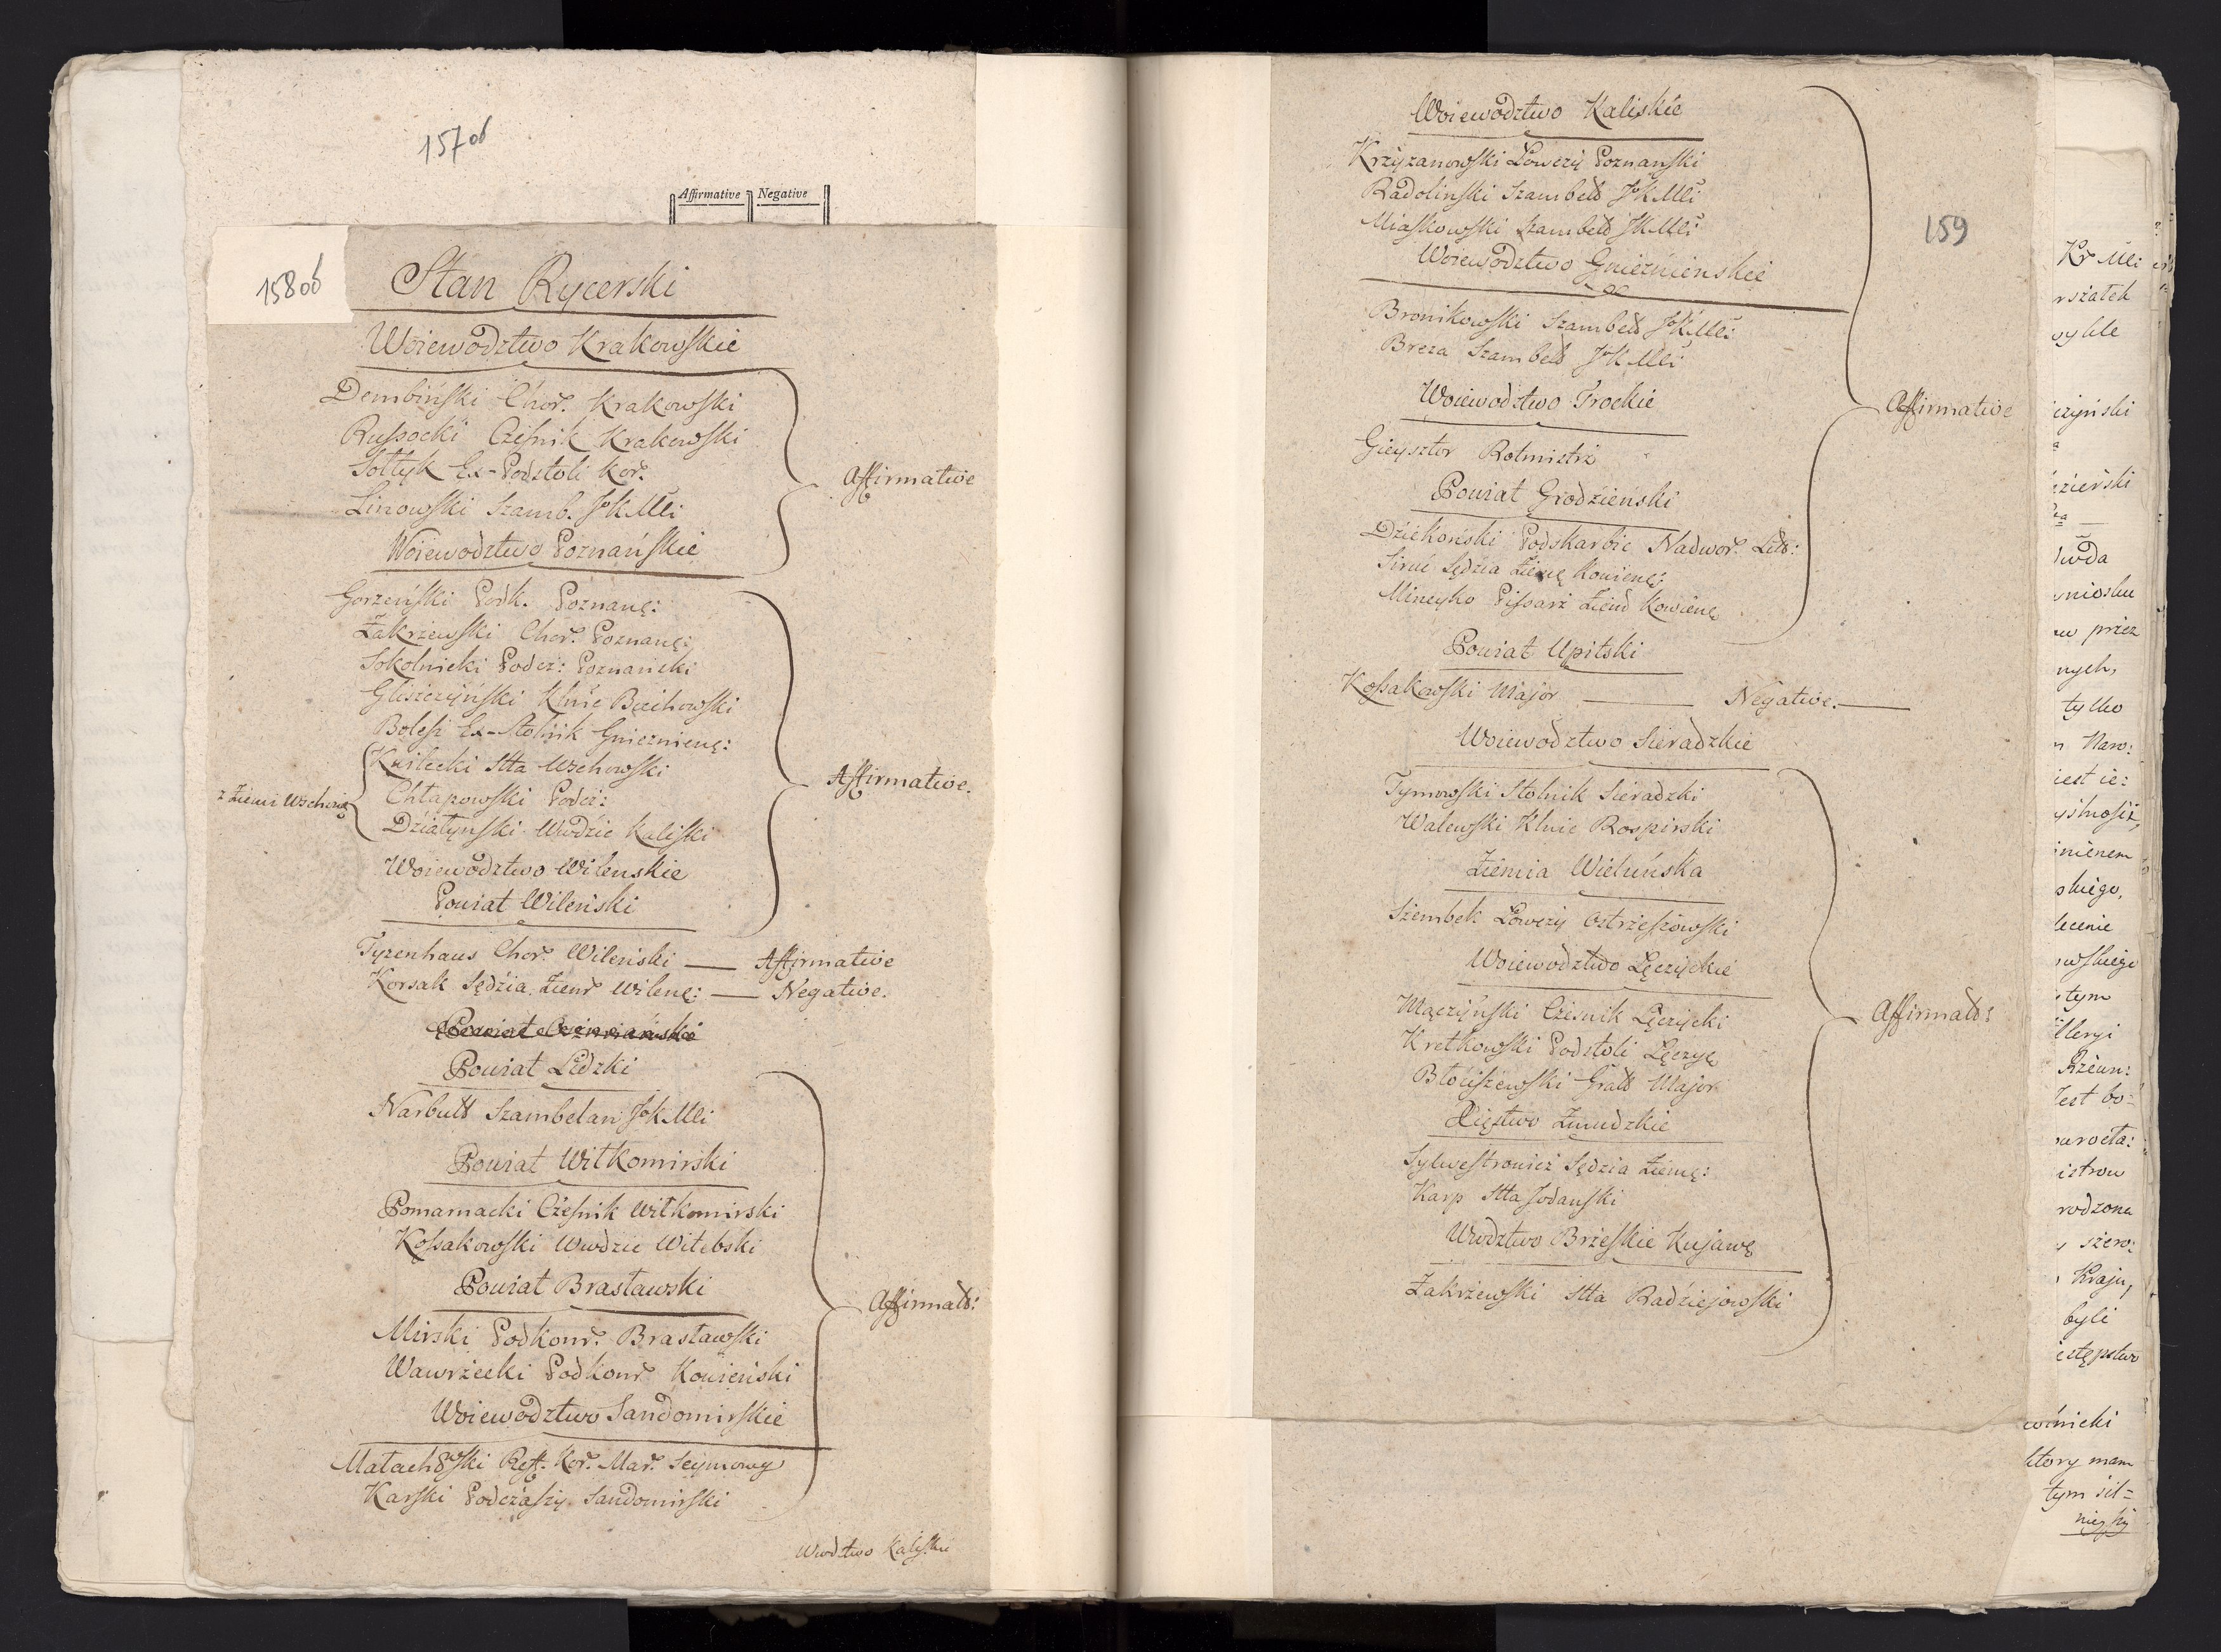 157 ob
Affirmative Negative
158 ob
Stan Rycerski
Woiewodztwo Krakowskie
Dembiński Chor. Krakowski
Russocki Cześnik Krakowski
Sołtyk Ex-Podstoli Kor.
Linowski Szamb. JKMci
Affirmative
Woiewodztwo Poznańskie
Gorzeński Podk. Poznanę:
Zakrzewski Chor. Poznanę:
Sokolnicki Podcz: Poznański
Gliszczyński Kluc
Ex-Stolnik Gnieznienę:
Kwilecki Stta Wschowski
z Ziemi Wschowę
Chłapowski Podcz:
Działyński Wwdzic Kaliski
Affirmative.
Woiewodztwo Wilenskie
Powiat Wileński
Tyzenhaus Chor. Wileński — Affirmative
Korsak Sędzia Ziem Wilenę: — Negative.
Powiat Lidzki
Narbutt Szambelan JKMci
Powiat Wiłkomirski
Pomarnacki Cześnik Wiłkomirski
Kossakowski Wwdzic Witebski
Powiat Brasławski
Affirmatt:
Mirski Podkom. Brasławski
Wawrzecki Podkom Kowieński
Woiewodztwo Sandomirskie
Małachowski Reff. Kor. Mar. Seymowy
Karski Podczaszy Sandomirski
Wwdztwo Kaliskie
Woiewodztwo Kaliskie
Krzyżanowski Łowczy Poznański
Radolinski Szambell JKMci
Miaskowski Szambell JKMci
159
Woiewodztwo Gnieźnienskie
Bronikowski Szambell JKMci
Breza Szambell JKMci
Woiewodztwo Trockie
Affirmative
Gieysztor Rotmistrz
Powiat Grodzieński
Dziekoński Podskarbie Nadwor. Litt:
Siruć Sędzia Ziemę Kowienę:
Mineyko Pissarz Ziem Kowienę
Powiat Upitski
Kossakowski Major — Negative. —
Woiewodztwo Sieradzkie
Tymowski Stolnik Sieradzki
Walewski Kluic Rospirski
Ziemia Wieluńska
Szembek Łowczy Ostrzeszowski
Woiewodztwo Łęczyckie
Mączyński Cześnik Łęczycki
Affirmatt:
Kretkowski Podstoli Łęczyę
Błociszewski Grall Major
Xięstwo Żmudzkie
Sylwestrowicz Sędzia Ziemę:
Karp Stta Jodański
Wwdztwo Brzeskie Kujawę
Zakrzewski Stta Radziejowski
Kr Mci
rszałek
czyński
woda
wniosku
przez
nych,
tylko
iest ie:
skiego,
lecenie
owskiego
tym
lleryi
rodzona
Kraju,
byli
ctępstwo
który mam
tym sil=